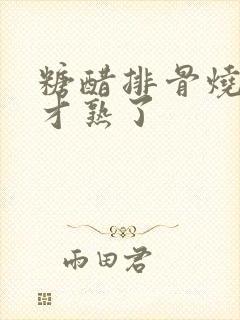 糖醋排骨燒
才熟了
雨田君